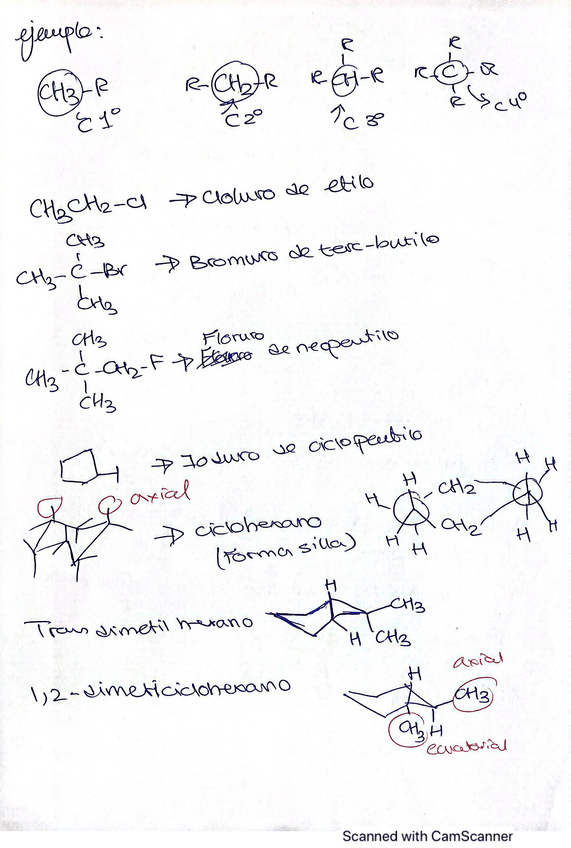 ejemplo:
R R
CH3-R R-CH2-R R-CH-R R-C-R
C 1º C 2º C 3º R C 4º
CH3CH2-Cl → Cloluro de etilo
CH3
CH3-C-Br → Bromuro de terc-butilo
CH3
CH3 Floruro
CH3-C-CH2-F → de neopentilo
CH3
I → Ioduro de ciclopentilo
axial
→ ciclohexano
(forma silla)
H H H H
CH2
CH2
H H H H
H
Trans dimetil hexano CH3
H CH3
axial
1,2-dimeticiclohexano H CH3
CH3 H
ecuatorial
Scanned with CamScanner